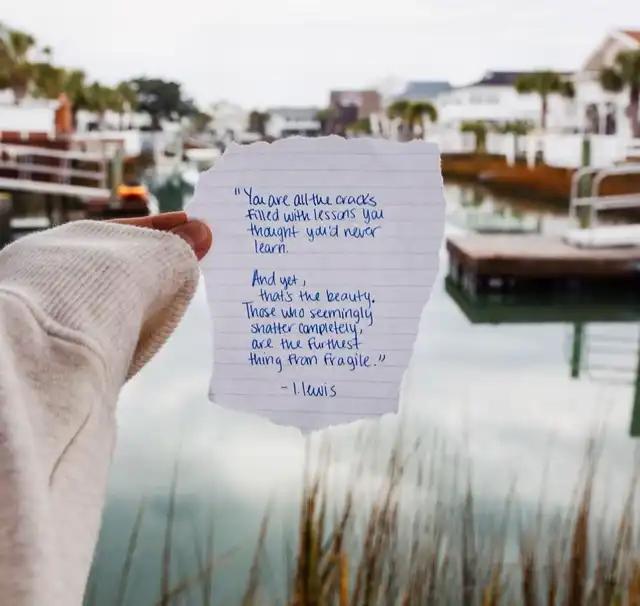 "You are all the cracks
filled with lessons you
thought you'd never
learn.
And yet,
that's the beauty.
Those who seemingly
shatter completely,
are the furthest
thing from fragile."
- l.lewis